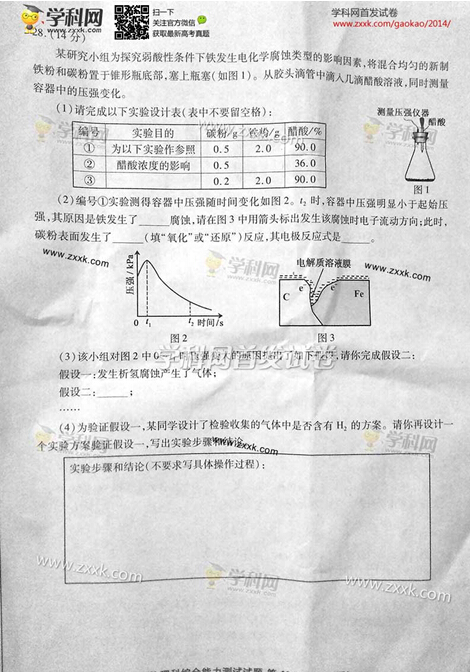 扫描二维码
关注官方微信
获取最新高考真题
学科网首发试卷
www.zxxk.com/gaokao/2014/
28.(14分)
某研究小组为探究弱酸性条件下铁发生电化学腐蚀类型的影响因素,将混合均匀的新制
铁粉和碳粉置于锥形瓶底部,塞上瓶塞(如图1)。从胶头滴管中滴入几滴醋酸溶液,同时测量
容器中的压强变化。
(1)请完成以下实验设计表(表中不要留空格):
编号 实验目的 碳粉/g 铁粉/g 醋酸/%
① 为以下实验作参照 0.5 2.0 90.0
② 醋酸浓度的影响 0.5 36.0
③ 0.2 2.0 90.0
测量压强仪器
醋酸
图1
(2)编号①实验测得容器中压强随时间变化如图2。t2时,容器中压强明显小于起始压
强,其原因是铁发生了____腐蚀,请在图3中用箭头标出发生该腐蚀时电子流动方向;此时,
碳粉表面发生了____(填“氧化”或“还原”)反应,其电极反应式是____。
www.zxxk.com
学科网
压强/kPa
0 t1 t2 时间/s
图2
电解质溶液膜
C e- e- Fe
图3
学科网首发试卷
(3)该小组对图2中0
假设,请你完成假设二:
假设一:发生析氢腐蚀产生了气体;
假设二:____;
……
(4)为验证假设一,某同学设计了检验收集的气体中是否含有H2的方案。请你再设计一
个实验方案验证假设一,写出实验步骤和结论。
www.zxxk.com
学科网
实验步骤和结论(不要求写具体操作过程):
www.zxxk.com
学科网
www.zxxk.com
学科网